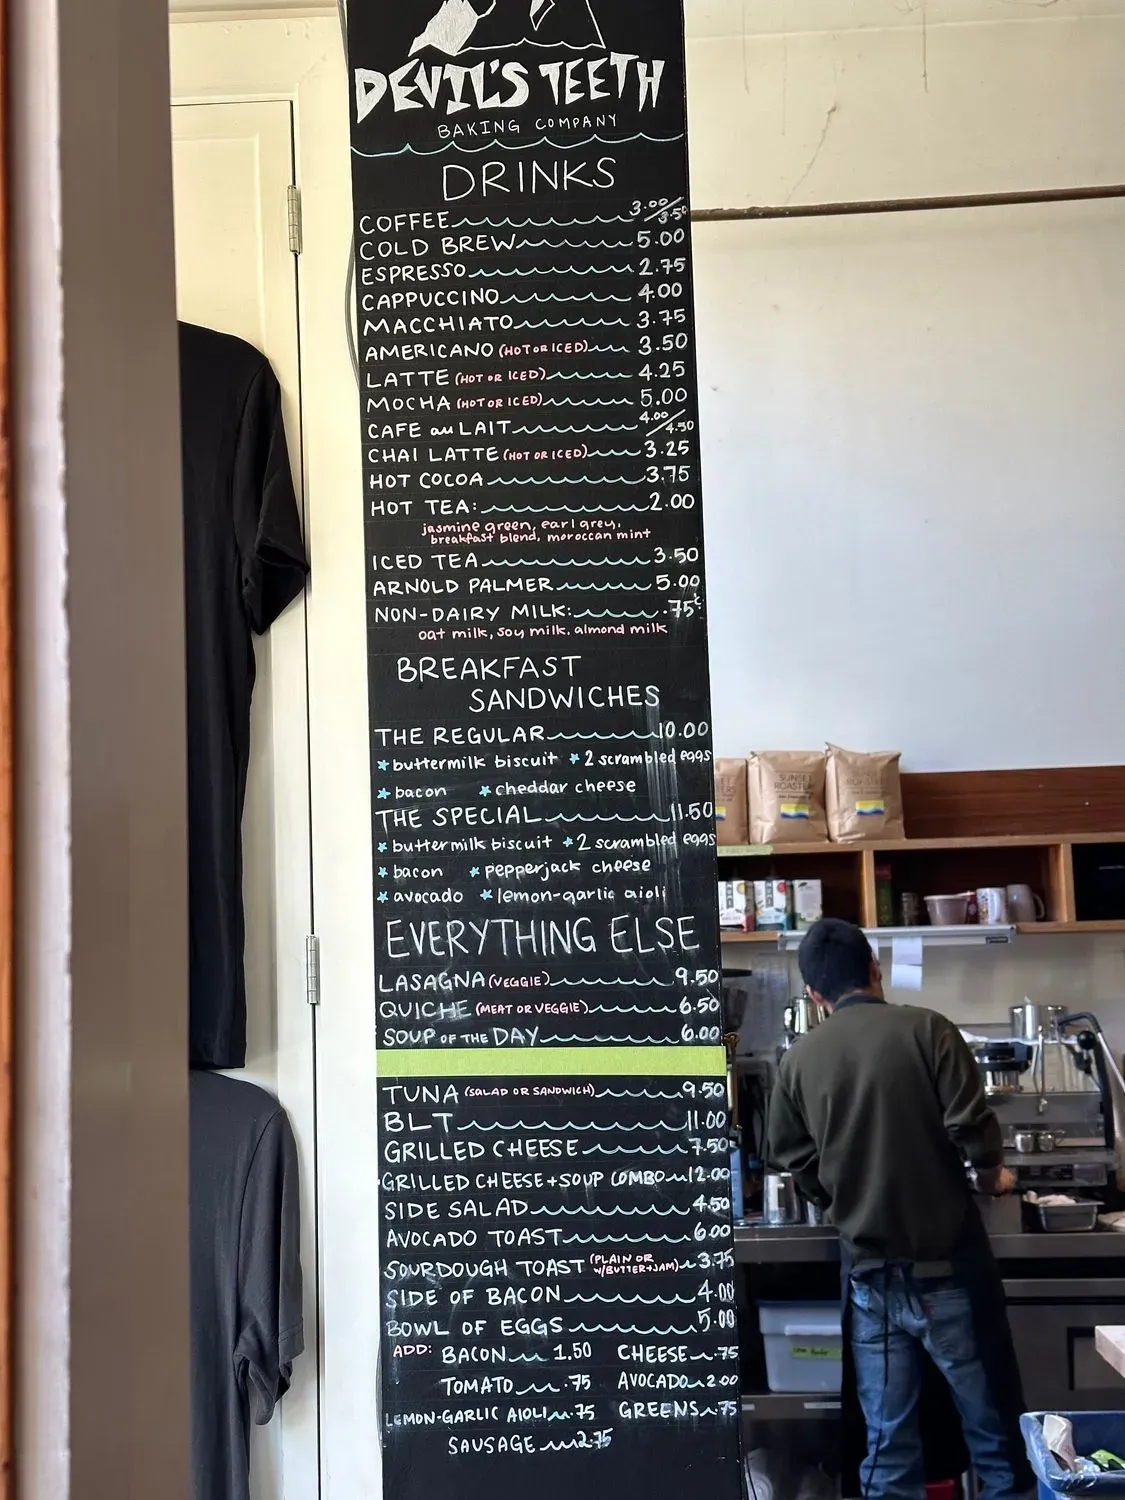 DEVIL'S TEETH
BAKING COMPANY
DRINKS
COFFEE 3.00/3.50
COLD BREW 5.00
ESPRESSO 2.75
CAPPUCCINO 4.00
MACCHIATO 3.75
AMERICANO (HOT OR ICED) 3.50
LATTE (HOT OR ICED) 4.25
MOCHA (HOT OR ICED) 5.00
CAFE au LAIT 4.00/4.50
CHAI LATTE (HOT OR ICED) 3.25
HOT COCOA 3.75
HOT TEA: 2.00
jasmine green, earl grey,
breakfast blend, moroccan mint
ICED TEA 3.50
ARNOLD PALMER 5.00
NON-DAIRY MILK: .75¢
oat milk, soy milk, almond milk
BREAKFAST
SANDWICHES
THE REGULAR 10.00
buttermilk biscuit 2 scrambled eggs
bacon cheddar cheese
THE SPECIAL 11.50
buttermilk biscuit 2 scrambled eggs
bacon pepperjack cheese
avocado lemon-garlic aioli
EVERYTHING ELSE
LASAGNA (VEGGIE) 9.50
QUICHE (MEAT OR VEGGIE) 6.50
SOUP OF THE DAY 6.00
TUNA (SALAD OR SANDWICH) 9.50
BLT 11.00
GRILLED CHEESE 7.50
GRILLED CHEESE + SOUP COMBO 12.00
SIDE SALAD 4.50
AVOCADO TOAST 6.00
SOURDOUGH TOAST (PLAIN OR W/BUTTER+JAM) 3.75
SIDE OF BACON 4.00
BOWL OF EGGS 5.00
ADD: BACON 1.50 CHEESE .75
TOMATO .75 AVOCADO 2.00
LEMON-GARLIC AIOLI .75 GREENS .75
SAUSAGE 2.75
SUNSET
ROASTERS